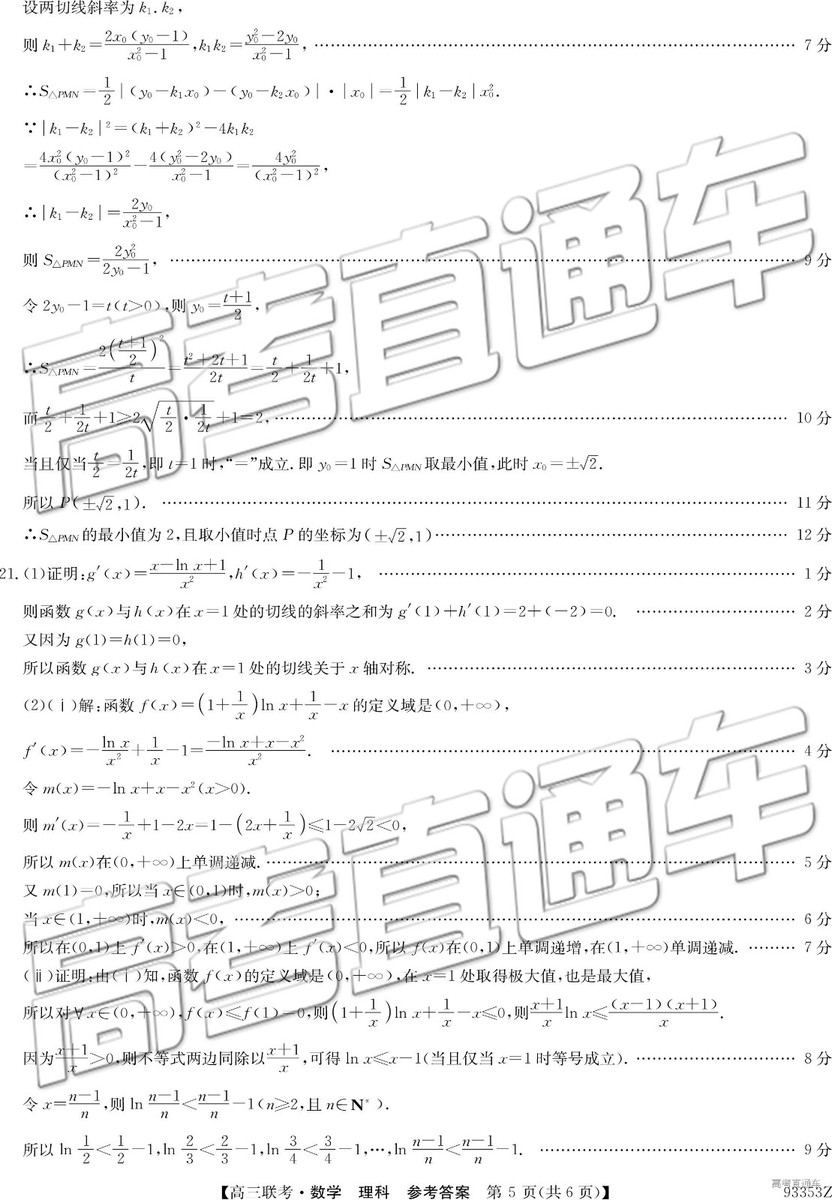 设两切线斜率为 k₁.k₂,
则 k₁+k₂=\frac{2x₀(y₀-1)}{x₀²-1},k₁k₂=\frac{y₀²-2y₀}{x₀²-1}, …… 7 分
∴S△PMN=\frac{1}{2}|(y₀-k₁x₀)-(y₀-k₂x₀)|·|x₀|=\frac{1}{2}|k₁-k₂|x₀².
∵|k₁-k₂|²=(k₁+k₂)²-4k₁k₂
=\frac{4x₀²(y₀-1)²}{(x₀²-1)²}-\frac{4(y₀²-2y₀)}{x₀²-1}=\frac{4y₀²}{(x₀²-1)²},
∴|k₁-k₂|=\frac{2y₀}{x₀²-1},
则 S△PMN=\frac{2y₀²}{2y₀-1}, …… 9 分
令 2y₀-1=t(t>0),则 y₀=\frac{t+1}{2},
∴S△PMN=\frac{2(\frac{t+1}{2})²}{t}=\frac{t²+2t+1}{2t}=\frac{t}{2}+\frac{1}{2t}+1,
而\frac{t}{2}+\frac{1}{2t}+1≥2\sqrt{\frac{t}{2}·\frac{1}{2t}}+1=2, …… 10 分
当且仅当\frac{t}{2}=\frac{1}{2t},即 t=1 时,“=”成立.即 y₀=1 时 S△PMN取最小值,此时 x₀=±√2.
所以 P(±√2,1). …… 11 分
∴S△PMN的最小值为 2,且取小值时点 P 的坐标为(±√2,1) …… 12 分
21.(1)证明:g′(x)=\frac{x-ln x+1}{x²},h′(x)=-\frac{1}{x²}-1, …… 1 分
则函数 g(x)与 h(x)在 x=1 处的切线的斜率之和为 g′(1)+h′(1)=2+(-2)=0. …… 2 分
又因为 g(1)=h(1)=0,
所以函数 g(x)与 h(x)在 x=1 处的切线关于 x 轴对称. …… 3 分
(2)(ⅰ)解:函数 f(x)=(1+\frac{1}{x})ln x+\frac{1}{x}-x 的定义域是(0,+∞),
f′(x)=-\frac{ln x}{x²}+\frac{1}{x}-1=\frac{-ln x+x-x²}{x²}. …… 4 分
令 m(x)=-ln x+x-x²(x>0).
则 m′(x)=-\frac{1}{x}+1-2x=1-(2x+\frac{1}{x})≤1-2√2<0,
所以 m(x)在(0,+∞)上单调递减. …… 5 分
又 m(1)=0,所以当 x∈(0,1)时,m(x)>0;
当 x∈(1,+∞)时,m(x)<0, …… 6 分
所以在(0,1)上 f′(x)>0,在(1,+∞)上 f′(x)<0,所以 f(x)在(0,1)上单调递增,在(1,+∞)单调递减. …… 7 分
(ⅱ)证明:由(ⅰ)知,函数 f(x)的定义域是(0,+∞),在 x=1 处取得极大值,也是最大值,
所以对∀x∈(0,+∞),f(x)≤f(1)=0,则(1+\frac{1}{x})ln x+\frac{1}{x}-x≤0,则\frac{x+1}{x}ln x≤\frac{(x-1)(x+1)}{x}.
因为\frac{x+1}{x}>0,则不等式两边同除以\frac{x+1}{x},可得 ln x≤x-1(当且仅当 x=1 时等号成立). …… 8 分
令 x=\frac{n-1}{n},则 ln \frac{n-1}{n}<\frac{n-1}{n}-1(n≥2,且 n∈N*).
所以 ln \frac{1}{2}<\frac{1}{2}-1,ln \frac{2}{3}<\frac{2}{3}-1,ln \frac{3}{4}<\frac{3}{4}-1,…,ln \frac{n-1}{n}<\frac{n-1}{n}-1. …… 9 分
【高三联考·数学 理科 参考答案 第 5 页(共 6 页)】
93353Z
高考直通车
高考直通车
高考直通车